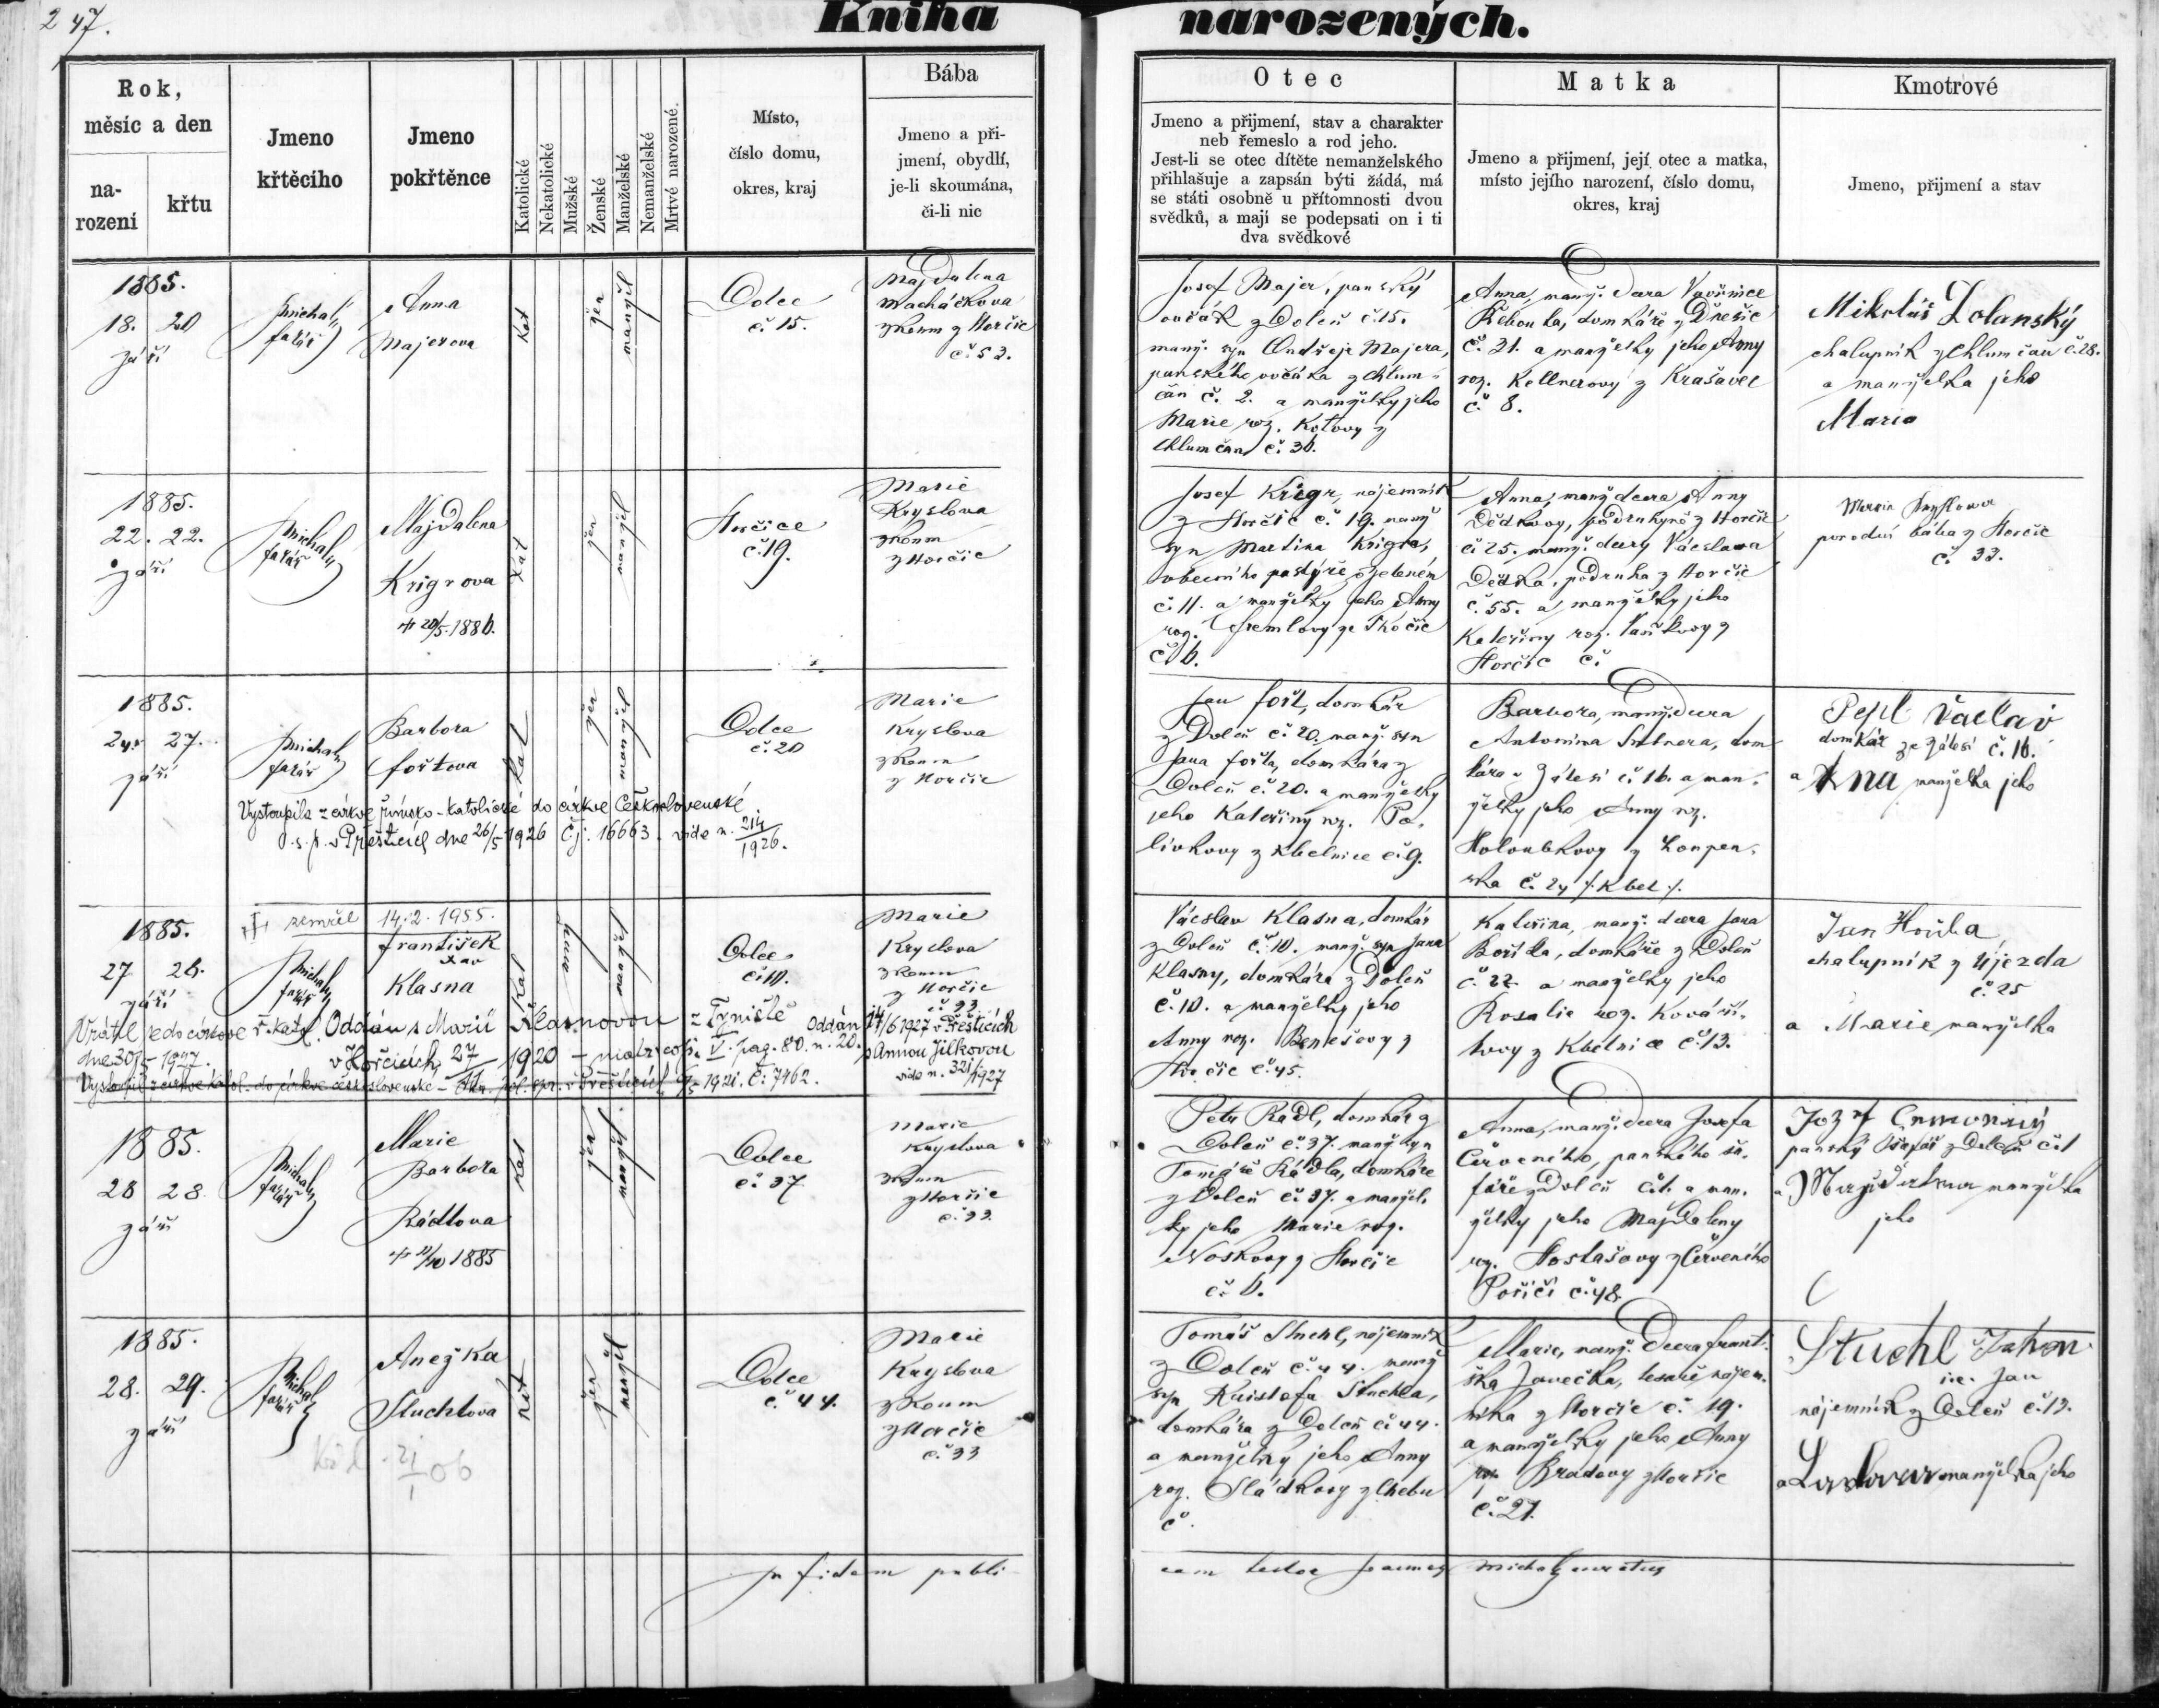 247.
Kniha narozených.
Rok,
měsíc a den
na-
rození
křtu
Jmeno
křtěcího
Jmeno
pokřtěnce
Katolické
Nekatolické
Mužské
Ženské
Manželské
Nemanželské
Mrtvé narozené.
Místo,
číslo domu,
okres, kraj
Bába
Jmeno a při-
jmení, obydlí,
je-li skoumána,
či-li nic
Otec
Jmeno a přijmení, stav a charakter
neb řemeslo a rod jeho.
Jest-li se otec dítěte nemanželského
přihlašuje a zapsán býti žádá, má
se státi osobně u přítomnosti dvou
svědků, a mají se podepsati on i ti
dva svědkové
Matka
Jmeno a přijmení, její otec a matka,
místo jejího narození, číslo domu,
okres, kraj
Kmotrové
Jmeno, přijmení a stav
1885.
18. 20
září
Michal
farář
Anna
Majerova
Kat
žen
manžel
Dolce
č. 15.
Majdalena
Macháčkova
zkoum z Horčic
č. 53.
Josef Majer, panský
ovčák z Dolců č. 15.
manž. syn Ondřeje Majera,
panského ovčáka z Chlum-
čan č. 2. a manželky jeho
Marie roz. Kotovy z
Chlumčan č. 36.
Anna, manž. dcera Vavřince
Řebounka, domkáře z Dnešic
č. 31. a manželky jeho Anny
roz. Kellnerovy z Krašovec
č. 8.
Mikoláš Dolanský
chalupník z Chlumčan č. 28.
a manželka jeho
Marie
1885.
22. 22.
září
Michal
farář
Majdalena
Krigrova
20/5. 1886.
Kat
žen
manžel
Horčice
č. 19.
Marie
Kryslova
zkoum
z Horčic
Josef Krigr, nájemník
z Horčic č. 19. manž
syn Martina Krigra,
obecního pastýře
č. 11. a manželky jeho Anny
roz. ze Skočic
č. 6.
Anna, manž dcera Anny
Dědkovy, podruhyně z Horčic
č. 25. manž. dcery Václava
Dědka, podruha z Horčic
č. 55. a manželky jeho
Kateřiny roz. Vaňkovy z
Horčic č.
Marie Kryslowa
porodní bába z Horčic
č. 33.
1885.
27. 27.
září
Michal
farář
Barbora
Foštova
Kat
žen
manžel
Dolce
č. 20
Marie
Kryslova
zkoum
z Horčic
Jan Fošt, domkář
z Dolců č. 20. manž. syn
Jana Fošta, domkáře z
Dolců č. 20. a manželky
jeho Kateřiny roz. Po-
lívkovy z Kbelnice č. 9.
Barbora, manž. dcera
Antonína Sutnera, dom
káře z Zálesí č. 16. a man-
želky jeho Anny roz.
Holoubkovy z
č. 24 /. Kbel /.
Pepl Václav
domkář ze Zálesí č. 16.
a Anna manželka jeho
Vystoupila z církve římsko-katolické do církve Československé
o. s. p. v Přešticích dne 26/5 1926 č.j. 16663. vide n. 214/1926.
1885.
27 28.
září
zemřel 14.2.1955.
Michal
farář
František
Xav
Klasna
Kat
muž
manžel
Dolce
č. 10.
Marie
Kryslova
zkoum
z Horčic
č. 33
Václav Klasna, domkář
z Dolců č. 10. manž. syn Jana
Klasny, domkáře z Dolců
č. 10. a manželky jeho
Anny roz. Benešovy z
Horčic č. 45.
Kateřina, manž. dcera Jana
Boříka, domkáře z Dolců
č. 22. a manželky jeho
Rosalie roz. Kováří-
kovy z Kbelnice č. 13.
Jan Houba
chalupník z Újezda
č. 25
a Marie manželka
Vrátil se do církve ř. katol.
dne 30/5 1947.
Oddán s Marií Klasnovou z Týniště
v Horčicích 27 1920 – matr. V. pag. 80. n. 20.
Oddán 14/6 1927 v Přešticích
s Annou Jílkovou
vide n. 321/1927
Vystoupil z církve katol. do církve československé – Okr. pol. spr. v Přešticích 1921. č. 7462.
1885.
28 28.
září
Michal
farář
Marie
Barbora
Rádlova
11/10 1885
Kat
žen
manžel
Dolce
č. 37
Marie
Kryslova
zkoum
z Horčic
č. 33.
Petr Radl, domkář z
Dolců č. 37. manž syn
Tomáše Rádla, domkáře
z Dolců č. 37. a manžel-
ky jeho Marie roz.
Noskovy z Horčic
č. 6.
Anna, manž. dcera Josefa
Červeného, panského ša-
fáře z Dolců č. 1. a man-
želky jeho Majdaleny
roz. Hostašovy z Červeného
Poříčí č. 48.
Jozef
panský šafář z Dolců č. 1
a Majdalena manželka
jeho
1885.
28. 29.
září
Michal
farář
Anežka
Stuchlova
Kat
žen
manžel
Dolce
č. 44.
Marie
Kryslova
zkoum
z Horčic
č. 33
Tomáš Stuchl, nájemník
z Dolců č. 44. manž
syn Kristofa Stuchla,
domkáře z Dolců č. 44.
a manželky jeho Anny
roz. Sládkovy z Chebu
č.
Marie, manž. dcera Franti-
ška Janečka, tesaře nájem-
níka z Horčic č. 19.
a manželky jeho Anny
roz. Bradovy z Horčic
č. 27.
Stuchl Johan
i.e. Jan
nájemník z Dolců č. 12.
a manželka jeho
21/1 06
In fidem publi-
cam testor Joannes Michal curatus